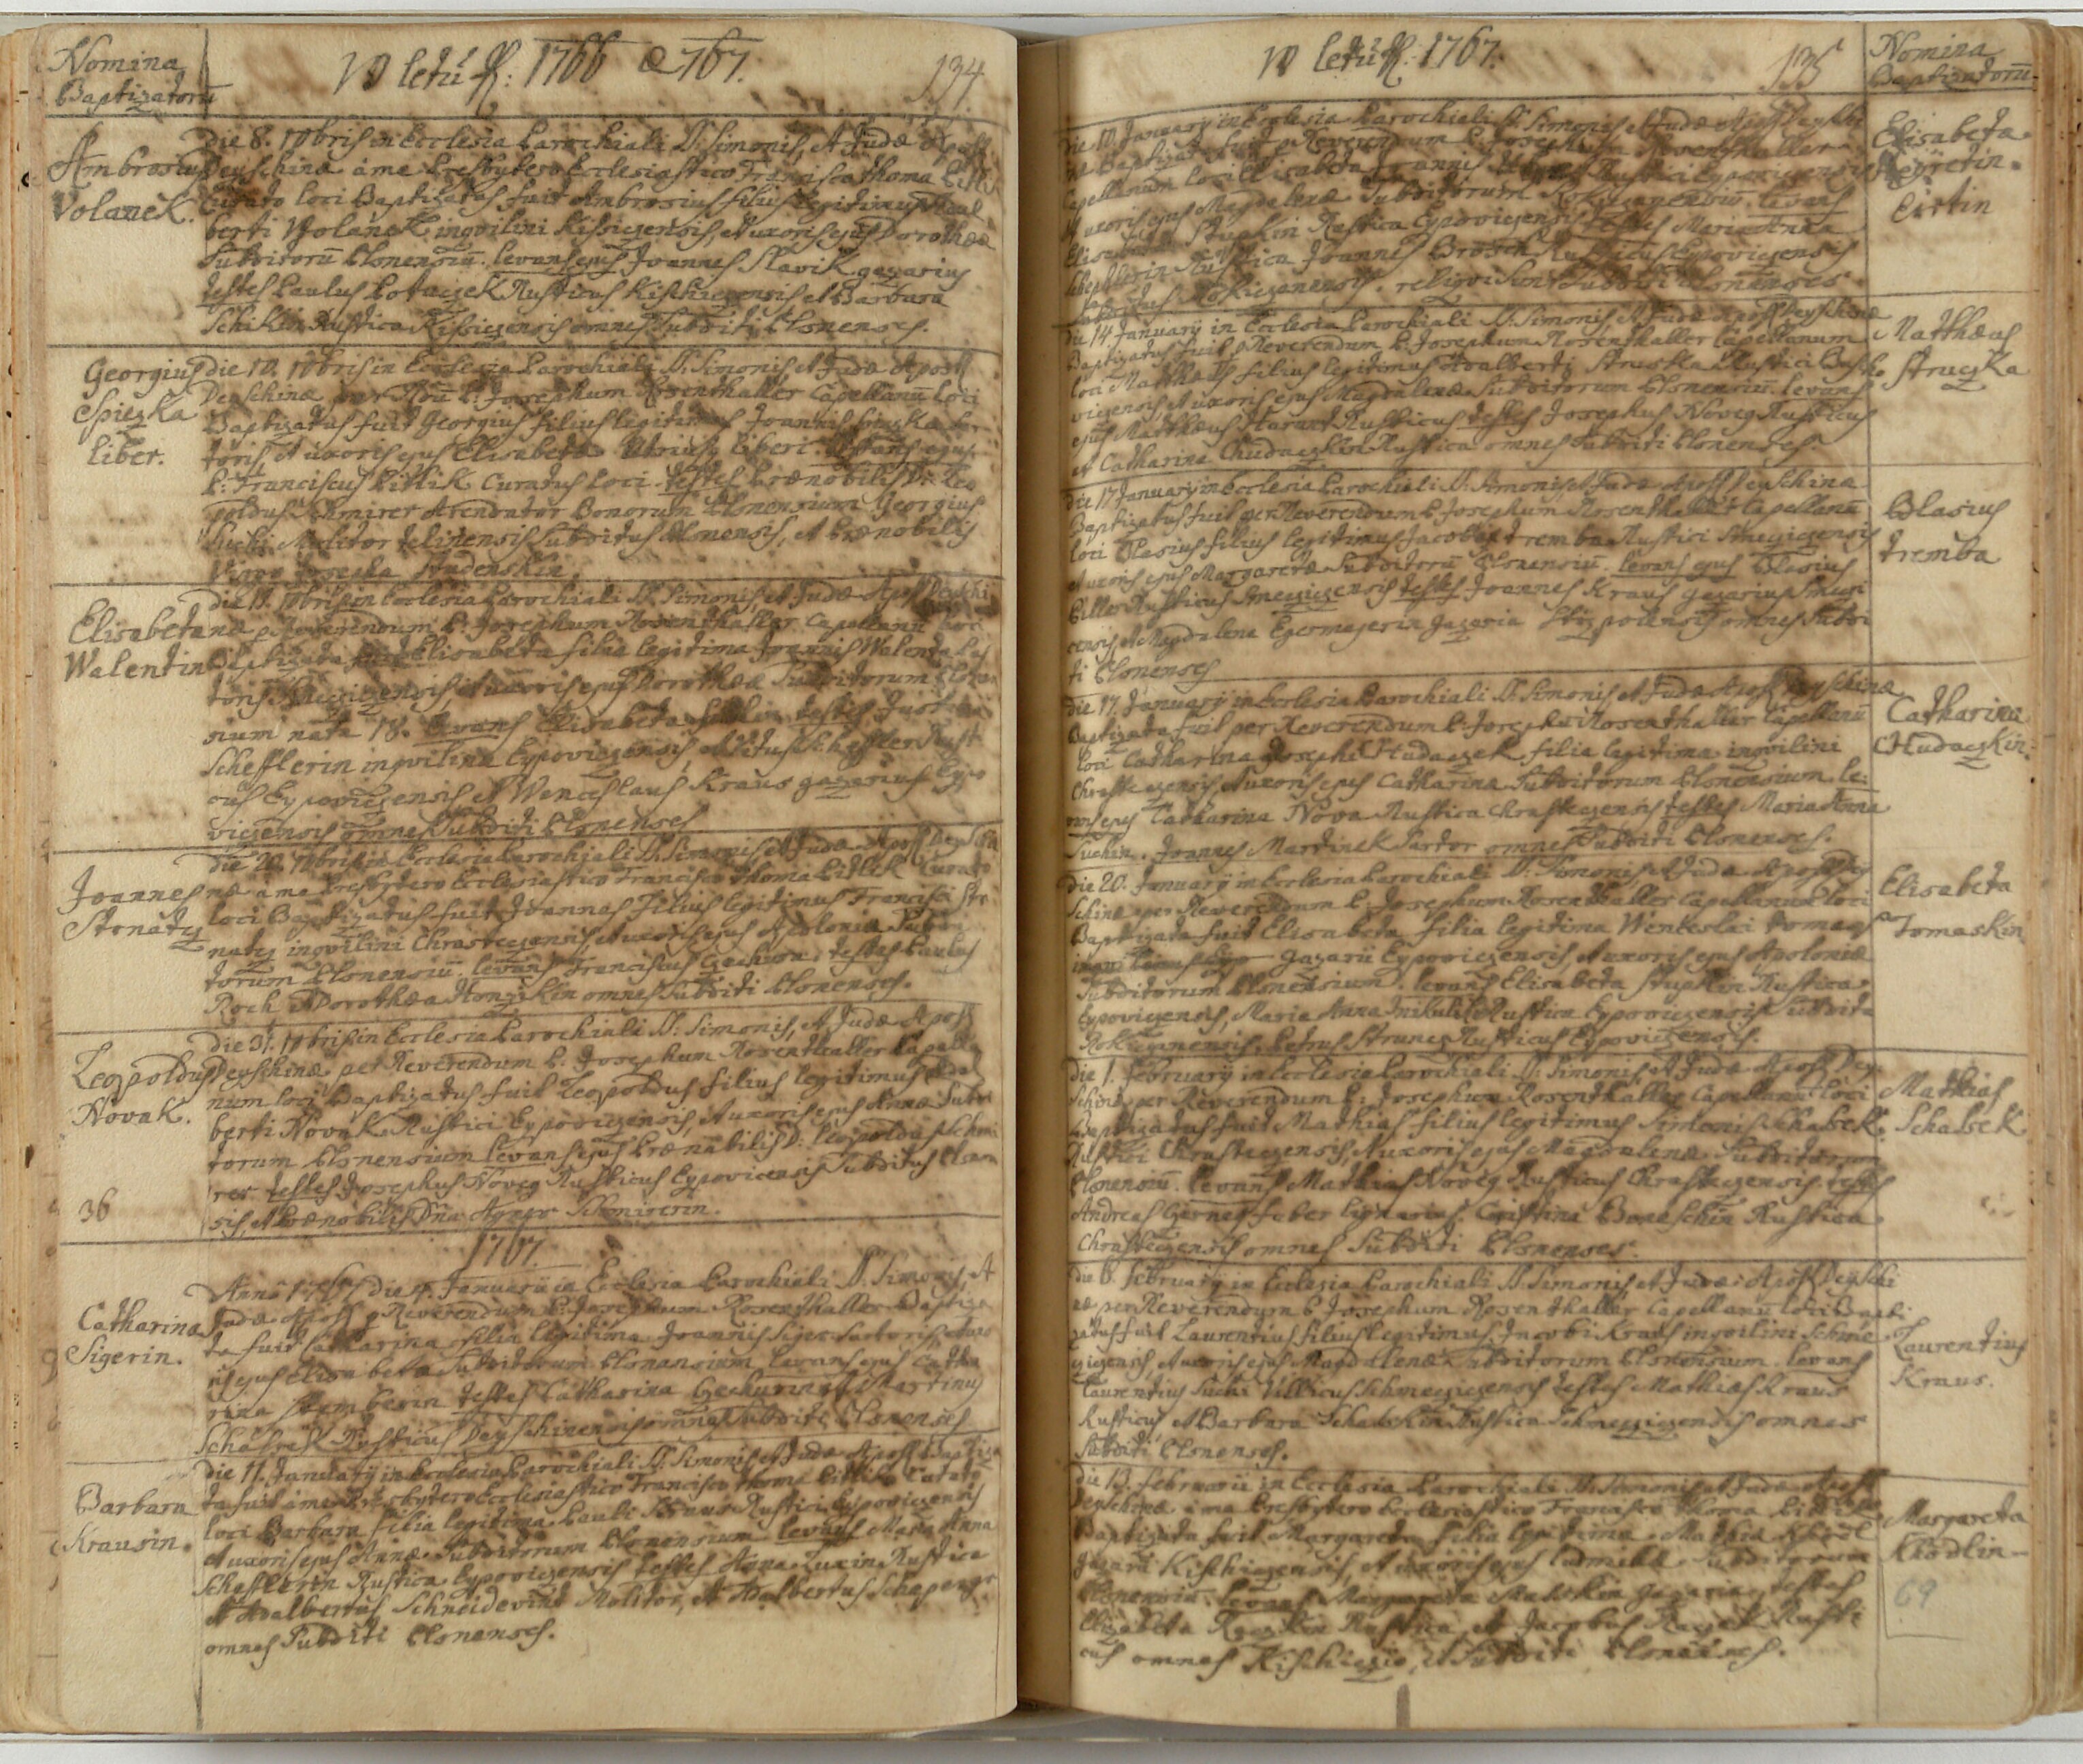 Nomina
Baptizatorū
W letú P: 1766 & 767.
134
Ambrosius
Volanek.
Die 8. 10bris in Ecclesia Parochiali S: Simonis, et Judæ Apost
Deyschinæ a me Presbytero Ecclesiastico Francisco Thoma Pitlik
Curato loci Baptizatus fuit Ambrosius filius legitimus Adal
berti Volanek inqvilini Kiſsiczensis, et uxoris ejus Dorothææ
Subditorū Plsnensiū. levans ejus Joannes Slavik gazarius
testes Paulus Potuczek Rusticus Kischiczensis et Barbara
Schikin Rustica Kiſsiczensis omnes Subditi Plsnenses.
Georgius
Spiczka
liber.
die 10. 10bris in Ecclesia Parochiali S: Simonis et Judæ Apost
Deyschinæ per Rdū P: Josephum Rosenthaller Capellanū loci
Baptizatus fuit Georgius filius legitimus Joannis Spiczka
toris, et uxoris ejus Elisabetæ utriusq liberi. levans ejus
P: Franciscus Pitlik Curatus loci. testes Prænobilis D: Leo
poldus Schmirer Arendator Bonorum Plsnensium Georgius
Suchi Molitor subditus Plsnensis, et Prænobilis
Virgo Josepha
Elisabeta
Walentin
die 19. 10bris in Ecclesia Parochiali S: Simonis, et Judæ Apost Deyschi
næ p Reverendum P: Josephum Rosenthaller Capellanū loci
Baptizata fuit Elisabeta filia legitima Joannis Walenta Pas
toris et uxoris ejus Dorothææ Subditorum Plsnen
sium nata 18. levans Elisabeta testes Justina
Schefflerin inqvilina Eypoviczensis, et Vitus Scheffler Rusti
cus Eypoviczensis et Wenceslaus Kraus gazarius Eypo
viczensis omnes Subditi Plsnenses
Joannes
Stonaty
die 20. 10bris in Ecclesia Parochiali S: Simonis, et Judæ Apost Deyschi
næ a me Presbytero Ecclesiastico Francisco Thoma Pitlik Curato
loci Baptizatus fuit Joannes filius legitimus Francisci Sto
naty inqvilini Chrasteczensis, et uxoris ejus Apolonia Subdi
torum Plsnensiū. levans Franciscus Czechura, testes Paulus
Roch et Dorothæa omnes Subditi Plsnenses.
Leopoldus
Novak.
36
die 31. 10bris in Ecclesia Parochiali S: Simonis, et Judæ Apost
Deyschinæ per Reverendum P: Josephum Rosenthaller Capella
num loci Baptizatus fuit Leopoldus filius legitimus Adal
berti Novak Rustici Eypoviczensis, et uxoris ejus Annæ Subdi
torum Plsnensium levans ejus Prænobilis D: Leopoldus Schmi
rer testes Josephus Noveg Rusticus Eypovicensis Subditus Plsnen
sis, et Prænobilis Dna Agnes Schmirerin.
1767.
Catharina
Sigerin.
Anno 1767 die 4. Januarii in Ecclesia Parochiali S: Simonis, et
Judæ Apost p Reverendum P: Josephum Rosenthaller Baptiza
ta fuit Catharina filia legitima Joannis Siger Sartoris, et uxo
ris ejus Elisabetæ Subditorum Plsnensium levans ejus Catha
rina testes Catharina Czechurin et Martinus
Schaſsek Rusticus Deyschinensis omnes Subditi Plsnenses
Barbara
Krausin.
Die 11. January in Ecclesia Parochiali S: Simonis et Judæ Apost Baptiza
ta fuit a me Presbytero Ecclesiastico Francisco Thoma Pitlik Curato
loci Barbara filia legitima Pauli Kraus Rustici Eypoviczensis
et uxoris ejus Annæ Subditorum Plsnensium levans Maria Anna
Schefflerin Rustica Eypoviczensis testes Anna Rustica
et Adalbertus Schneidevint Molitor, et Adalbertus
omnes Subditi Plsnenses.
W letú P: 1767.
135
Nomina
Baptizatorū
Elisabeta
Ciртin
die 10. January in Ecclesia Parochiali S: Simonis, et Judæ Apost Deyschi
næ Baptizata fuit p Reverendum P: Josephum Rosenthaller
Capellanum loci Elisabeta Joannis Rustici Eypoviczensis
et uxoris ejus Magdalenæ Subditorum Rokiczanensiū. levans
Elisabeta Stupkin Rustica Eypoviczensis testes Maria Anna
Schefflerin Rustica Joannes Brosch Rusticus Eypoviczensis
Subditus Rokiczanensis. reliqvi sunt Subditi Plsnenses.
Matthæus
Struczka
Die 14. January in Ecclesia Parochiali S: Simonis, et Judæ Apost Deyschinæ
Baptizatus fuit p Reverendum P: Josephum Rosenthaller Capellanum
loci Matthæus filius legitimus Adalberti Struczka Rustici
viczensis, et uxoris ejus Magdalenæ Subditorum Plsnensiū. levans
ejus Matthæus Rusticus testes Josephus Noveg Rusticus
et Catharina Chudaczkin Rustica omnes Subditi Plsnenses.
Blasius
Tremba
die 17 January in Ecclesia Parochiali S: Simonis, et Judæ Apost Deyschinæ
Baptizatus fuit per Reverendum P: Josephum Rosenthaller Capellanū
loci Blasius filius legitimus Jacobi Tremba Rustici
et uxoris ejus Margaretæ Subditorū Plsnensiū. levans ejus Blasius
Piller Rusticus testes Joannes Kraus gazarius
censis et Magdalena Egermajerin gazaria omnes Subdi
ti Plsnenses
Catharina
Chudaczkin.
die 17. January in Ecclesia Parochiali S: Simonis, et Judæ Apost Deyschinæ
Baptizata fuit per Reverendum P: Josephū Rosenthaller Capellanū
loci Catharina Josephi Chudaczek filia legitima inqvilini
Chrasteczensis, et uxoris ejus Catharinæ Subditorum Plsnensium. le:
vans ejus Catharina Nova Rustica Chrasteczensis testes Maria Anna
Suchin. Joannes Martinek Sartor omnes Subditi Plsnenses.
Elisabeta
Tomaskin
Die 20. January in Ecclesia Parochiali S: Simonis, et Judæ Apost Dey
schinæ per Reverendum P: Josephum Rosenthaller Capellanum loci
Baptizata fuit Elisabeta filia legitima Wenceslai Tomass
gazarii Eypoviczensis, et uxoris ejus Apoloniæ
Subditorum Plsnensium. levans Elisabeta Stupkin Rustica
Eypoviczensis, Maria Anna Rustica Eypoviczensis Subdita
Rokiczanensis. Petrus Strunez Rusticus Eypoviczensis.
Mathias
Schabek
die 1. February in Ecclesia Parochiali S: Simonis, et Judæ Apost Dey
schinæ per Reverendum P: Josephum Rosenthaller Capellanū loci
Baptizatus fuit Mathias filius legitimus Simonis Schabek
Rustici Chrasteczensis, et uxoris ejus Magdalenæ Subditorum
Plsnensiū. levans Mathias Noveg Rusticus Chrasteczensis. testes
Andreas Czerneg faber lignarius. Cristina Rustica
Chrasteczensis omnes Subditi Plsnenses.
Laurentius
Kraus.
die 6. February in Ecclesia Parochiali S: Simonis, et Judæ Apost Deyschi
næ per Reverendum P Josephum Rosenthaller Capellanū loci Bapti
zatus fuit Laurentius filius legitimus Jacobi Kraus inqvilini Schme
cziczensis, et uxoris ejus Magdalenæ Subditorum Plsnensium. levans
Laurentius Suchi Villicus Schmecziczensis testes Mathias Kraus
Rusticus et Barbara Rustica Schmecziczensis omnes
Subditi Plsnenses.
Margareta
Khodlin
69
die 13. Februarii in Ecclesia Parochiali S: Simonis et Judæ Apost
Deyschinæ a me Presbytero Ecclesiastico Francisco Thoma Pitlik
Baptizata fuit Margareta filia legitima Mathiæ
gazarii Kischiczensis, et uxoris ejus Ludmillæ Subditorum
Plsnensiū. levans Margareta gazaria, testes
Elizabeta Rustica et Jacobus Rusti
cus omnes et Subditi Plsnenses.